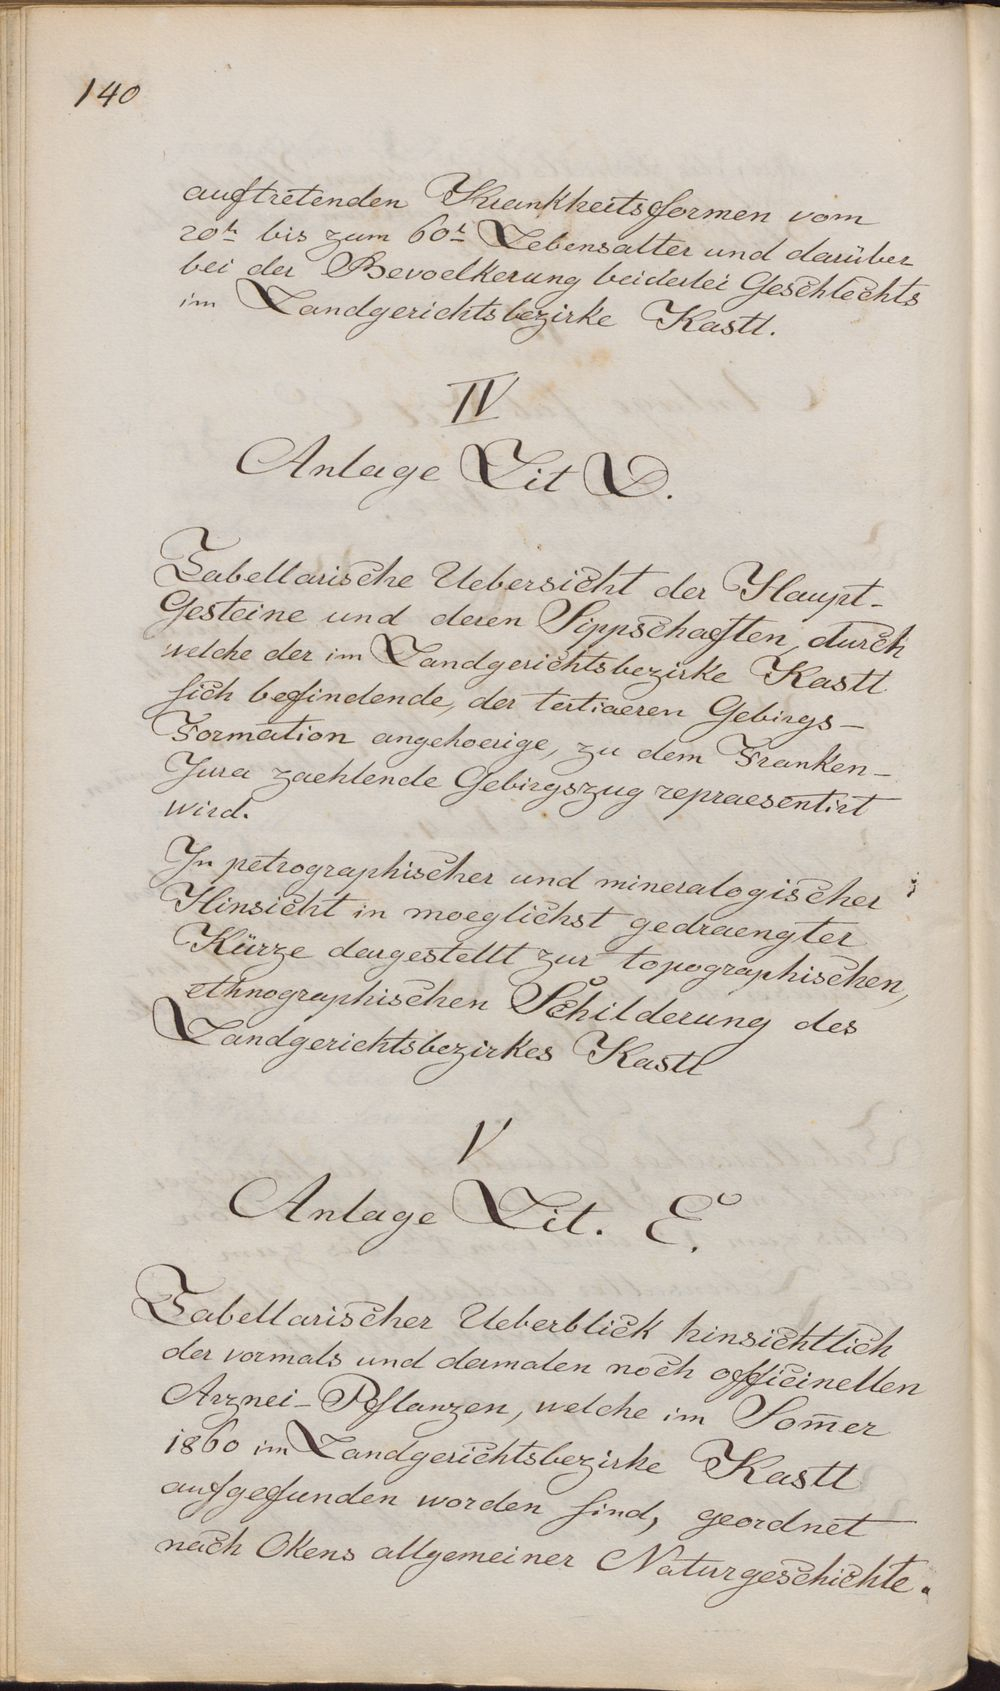 140
auftretenden Krankheitsformen vom
20t bis zum 60t Lebensalter und darüber
bei der Bevoelkerung beiderlei Geschlechts
im Landgerichtsbezirke Kastl.
IV
Anlage Lit D.
Tabellarische Uebersicht der Haupt-
Gesteine und deren Sippschaften, durch
welche der im Landgerichtsbezirke Kastl
sich befindende, der tertiaeren Gebirgs-
Formation angehoerige, zu dem Franken-
Jura zaehlende Gebirgszug repraesentirt
wird.
In petrographischer und mineralogischer
Hinsicht in moeglichst gedraengter
Kürze dargestellt zur topographischen,
ethnographischen Schilderung des
Landgerichtsbezirkes Kastl
V
Anlage Lit. E.
Tabellarischer Ueberblick hinsichtlich
der vormals und dermalen noch officinellen
Arznei-Pflanzen, welche im Som̄er
1860 im Landgerichtsbezirke Kastl
aufgefunden worden sind, geordnet
nach Okens allgemeiner Naturgeschichte.